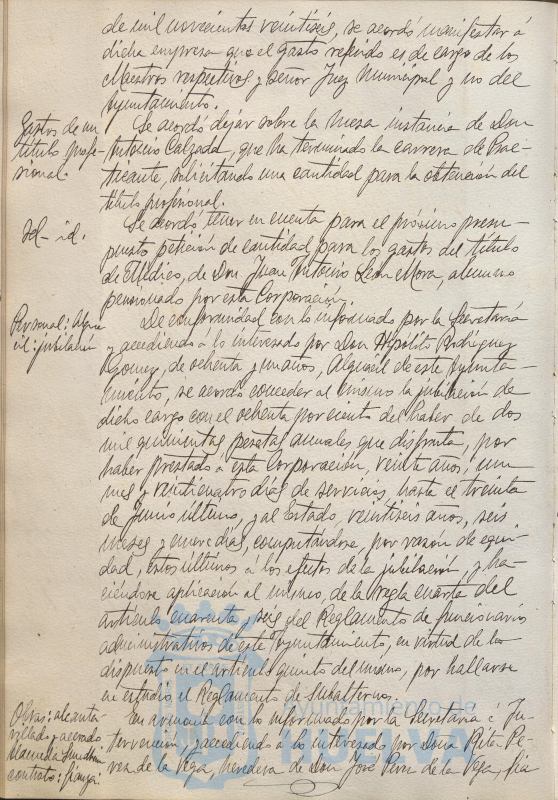 de mil novecientos veintiseis, se acordó manifestar á
dicha empresa que el gasto referido es de cargo de los
Maestros respectivos y señor Juez Municipal y no del
Ayuntamiento.
Gastos de un
título profe-
sional.
Se acordó dejar sobre la mesa instancia de Don
Antonio Calzada, que ha terminado la carrera de Prac-
ticante, solicitando una cantidad para la obtención del
título profesional.
Id - id.
Se acordó tener en cuenta para el próximo presu-
puesto petición de cantidad para los gastos del título
de Médico, de Don Juan Antonio León Mora, alumno
pensionado por esta Corporación.
Personal: Algua-
cil: jubilación
De conformidad con lo informado por la Secretaría
y accediendo a lo interesado por Don Hipólito Rodríguez
Gómez, de ochenta y un años, Alguacil de este Ayunta-
miento, se acordó conceder al mismo la jubilación de
dicho cargo con el ochenta por ciento del haber de dos
mil quinientas pesetas anuales que disfruta, por
haber prestado á esta Corporación, veinte años, un
mes y veinticuatro días de servicios, hasta el treinta
de Junio último, y al Estado, veintiseis años, seis
meses y nueve días, computándose, por razón de equi-
dad, estos últimos a los efectos de la jubilación y ha-
ciéndose aplicación al mismo, de la regla cuarta del
artículo cuarenta y seis del Reglamento de funcionarios
administrativos de este Ayuntamiento, en virtud de lo
dispuesto en el artículo quinto del mismo, por hallarse
en estudio el Reglamento de Subalternos.
Obras: alcanta-
rillado y acerado
contrato: fianza:
En armonía con lo informado por la Secretaría é In-
tervención, y accediendo a lo interesado por Doña Rita Pé-
rez de la Vega, heredera de Don José Pérez de la Vega, fia
Ayuntamiento de
HUELVA